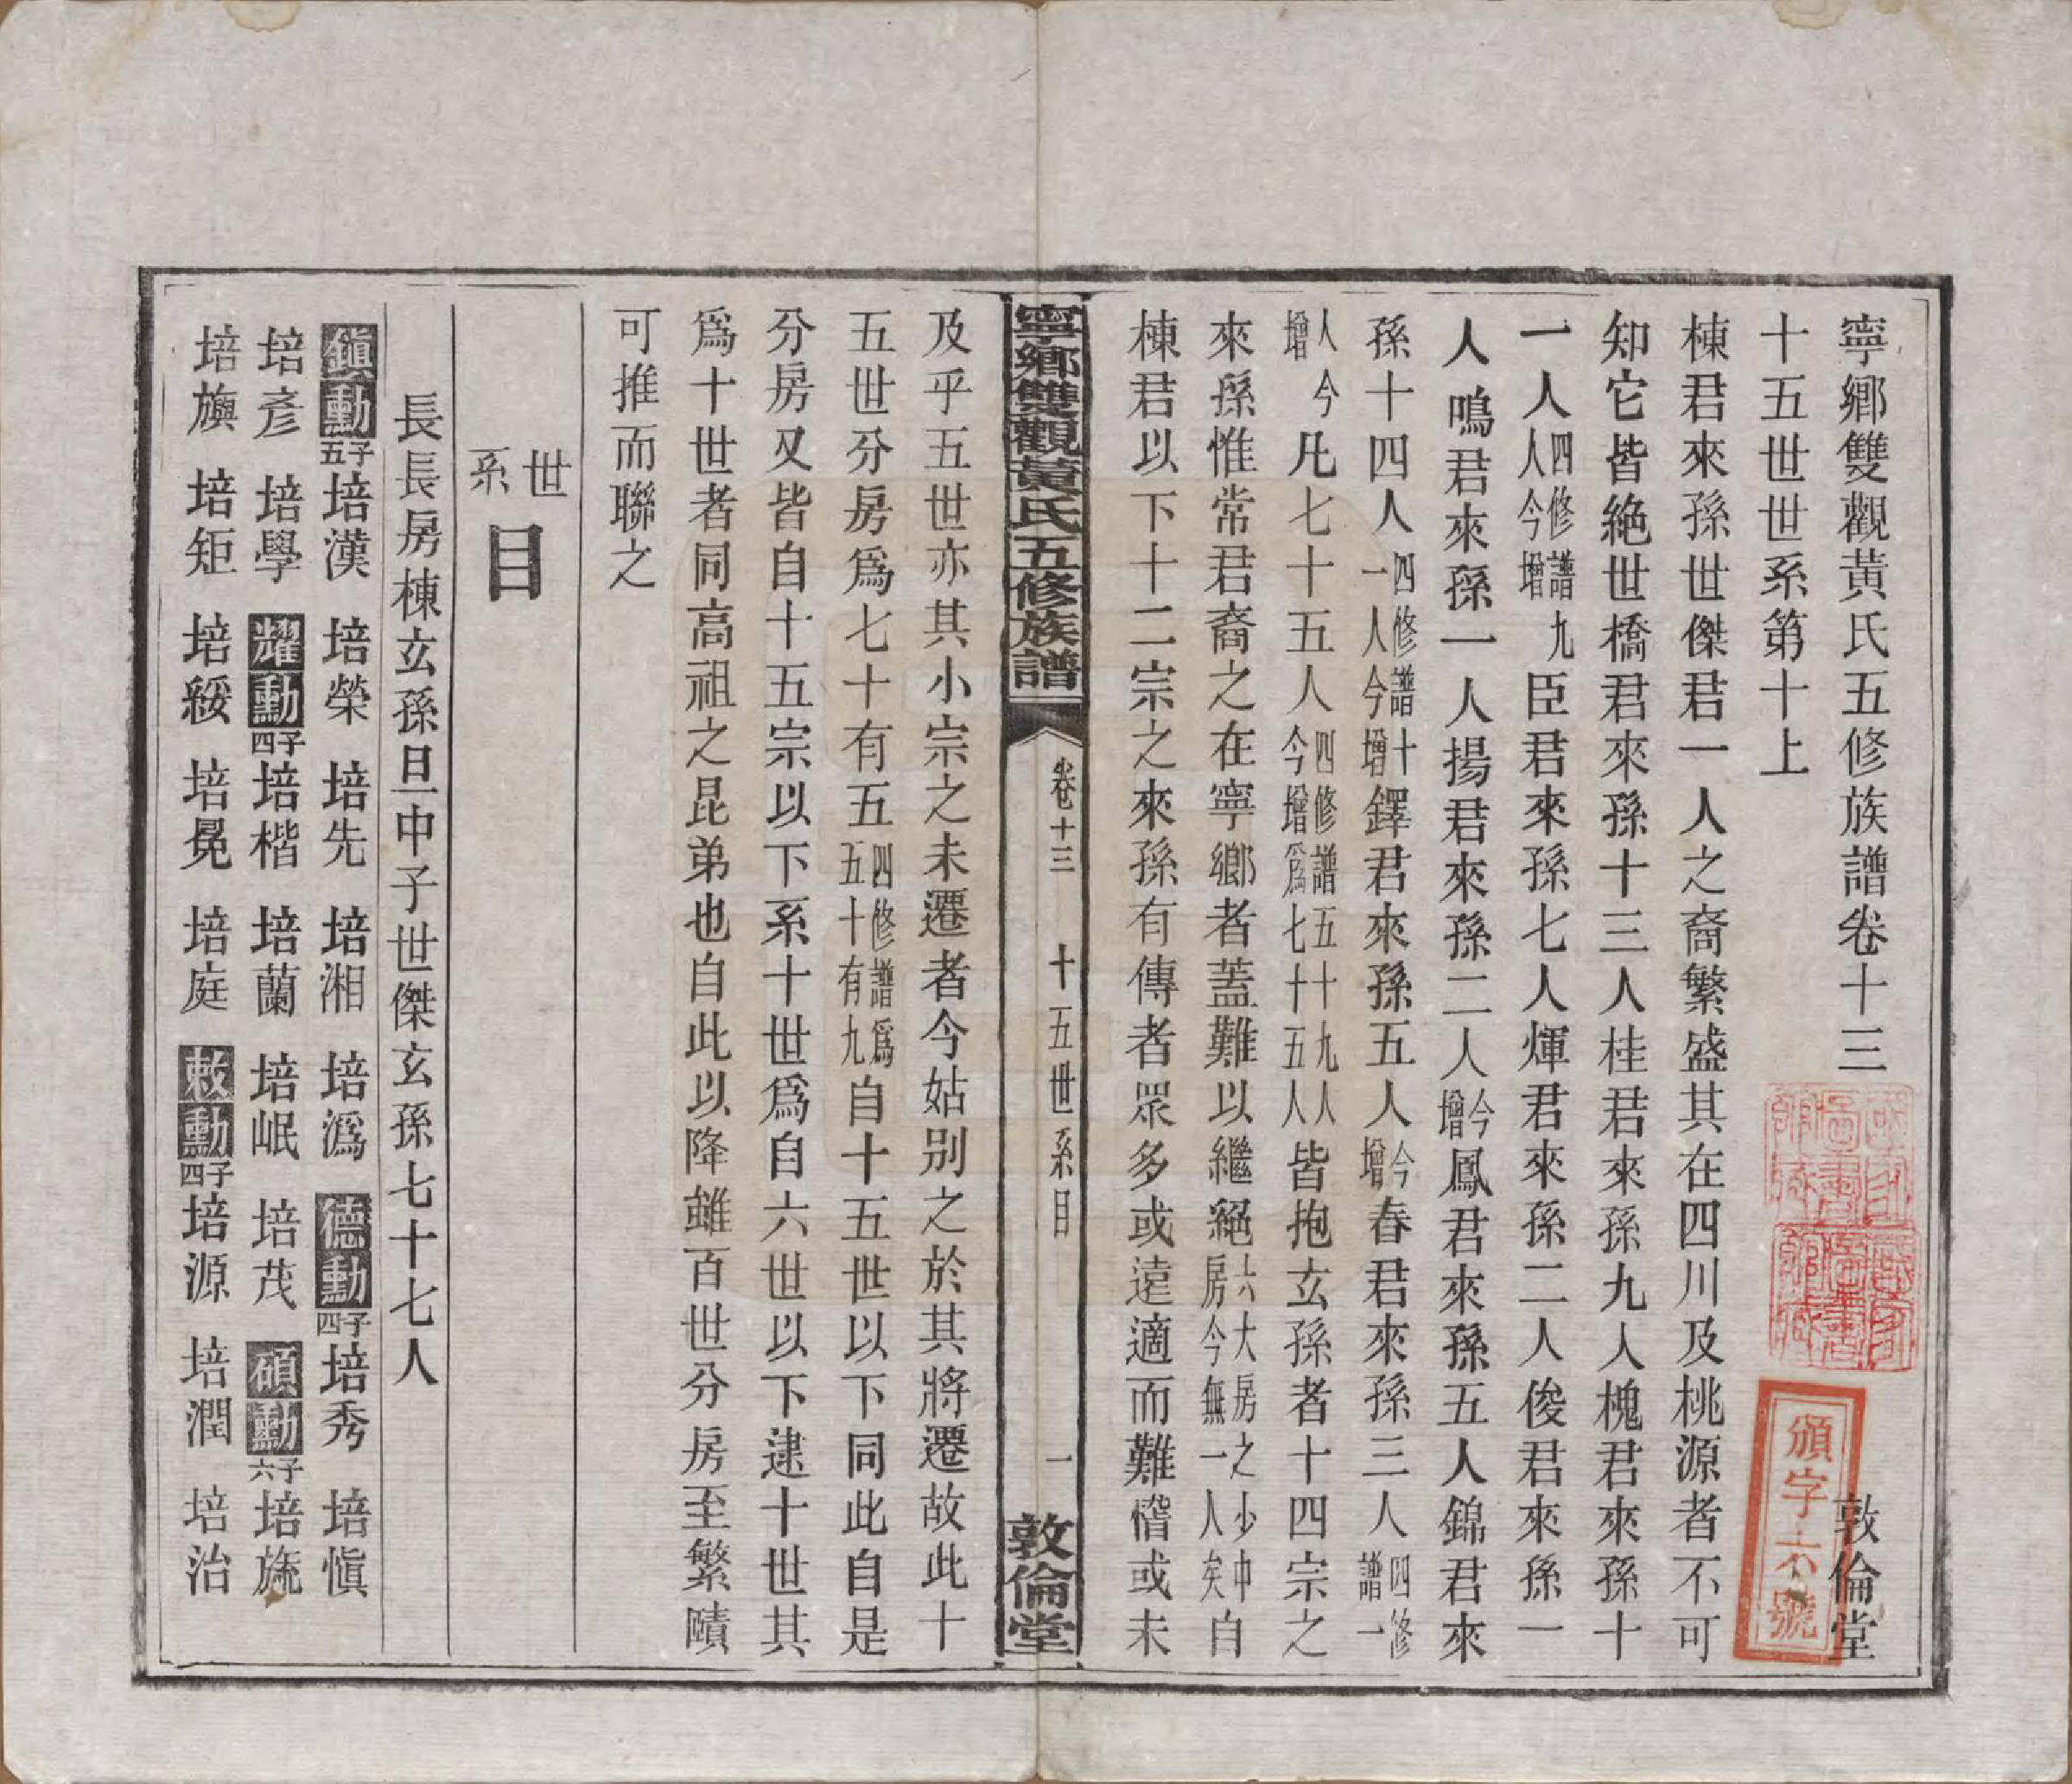 寧鄉雙觀黃氏五修族譜卷十三
敦倫堂
十五世世系第十上
棟君來孫世傑君一人之裔繁盛其在四川及桃源者不可
知它皆絶世橋君來孫十三人桂君來孫九人槐君來孫十
一人四修譜九人今增臣君來孫七人煇君來孫二人俊君來孫一
人鳴君來孫一人揚君來孫二人今增鳳君來孫五人錦君來
孫十四人四修譜十一人今增鐸君來孫五人今增春君來孫三人四修譜一
人增今凡七十五人四修譜五十九人今增爲七十五人皆抱玄孫者十四宗之
來孫惟常君裔之在寧鄉者蓋難以繼絕六大房之少中房今無一人矣自
棟君以下十二宗之來孫有傳者眾多或遠適而難稽或未
寧鄉雙觀黃氏五修族譜
卷十三
十五世系目
一
敦倫堂
及乎五世亦其小宗之未遷者今姑別之於其將遷故此十
五世分房爲七十有五四修譜爲五十有九自十五世以下同此自是
分房又皆自十五宗以下系十世爲自六世以下逮十世其
爲十世者同高祖之昆弟也自此以降雖百世分房至繁賾
可推而聯之
世系目
長長房棟玄孫旦中子世傑玄孫七十七人
鎮勳五子培漢 培榮 培先 培湘 培潙 德勳四子培秀 培愼
培彥 培學 耀勳四子培楷 培蘭 培岷 培茂 碩勳六子培旒
培旟 培矩 培綏 培冕 培庭 敕勳四子培源 培潤 培治
頒字六號